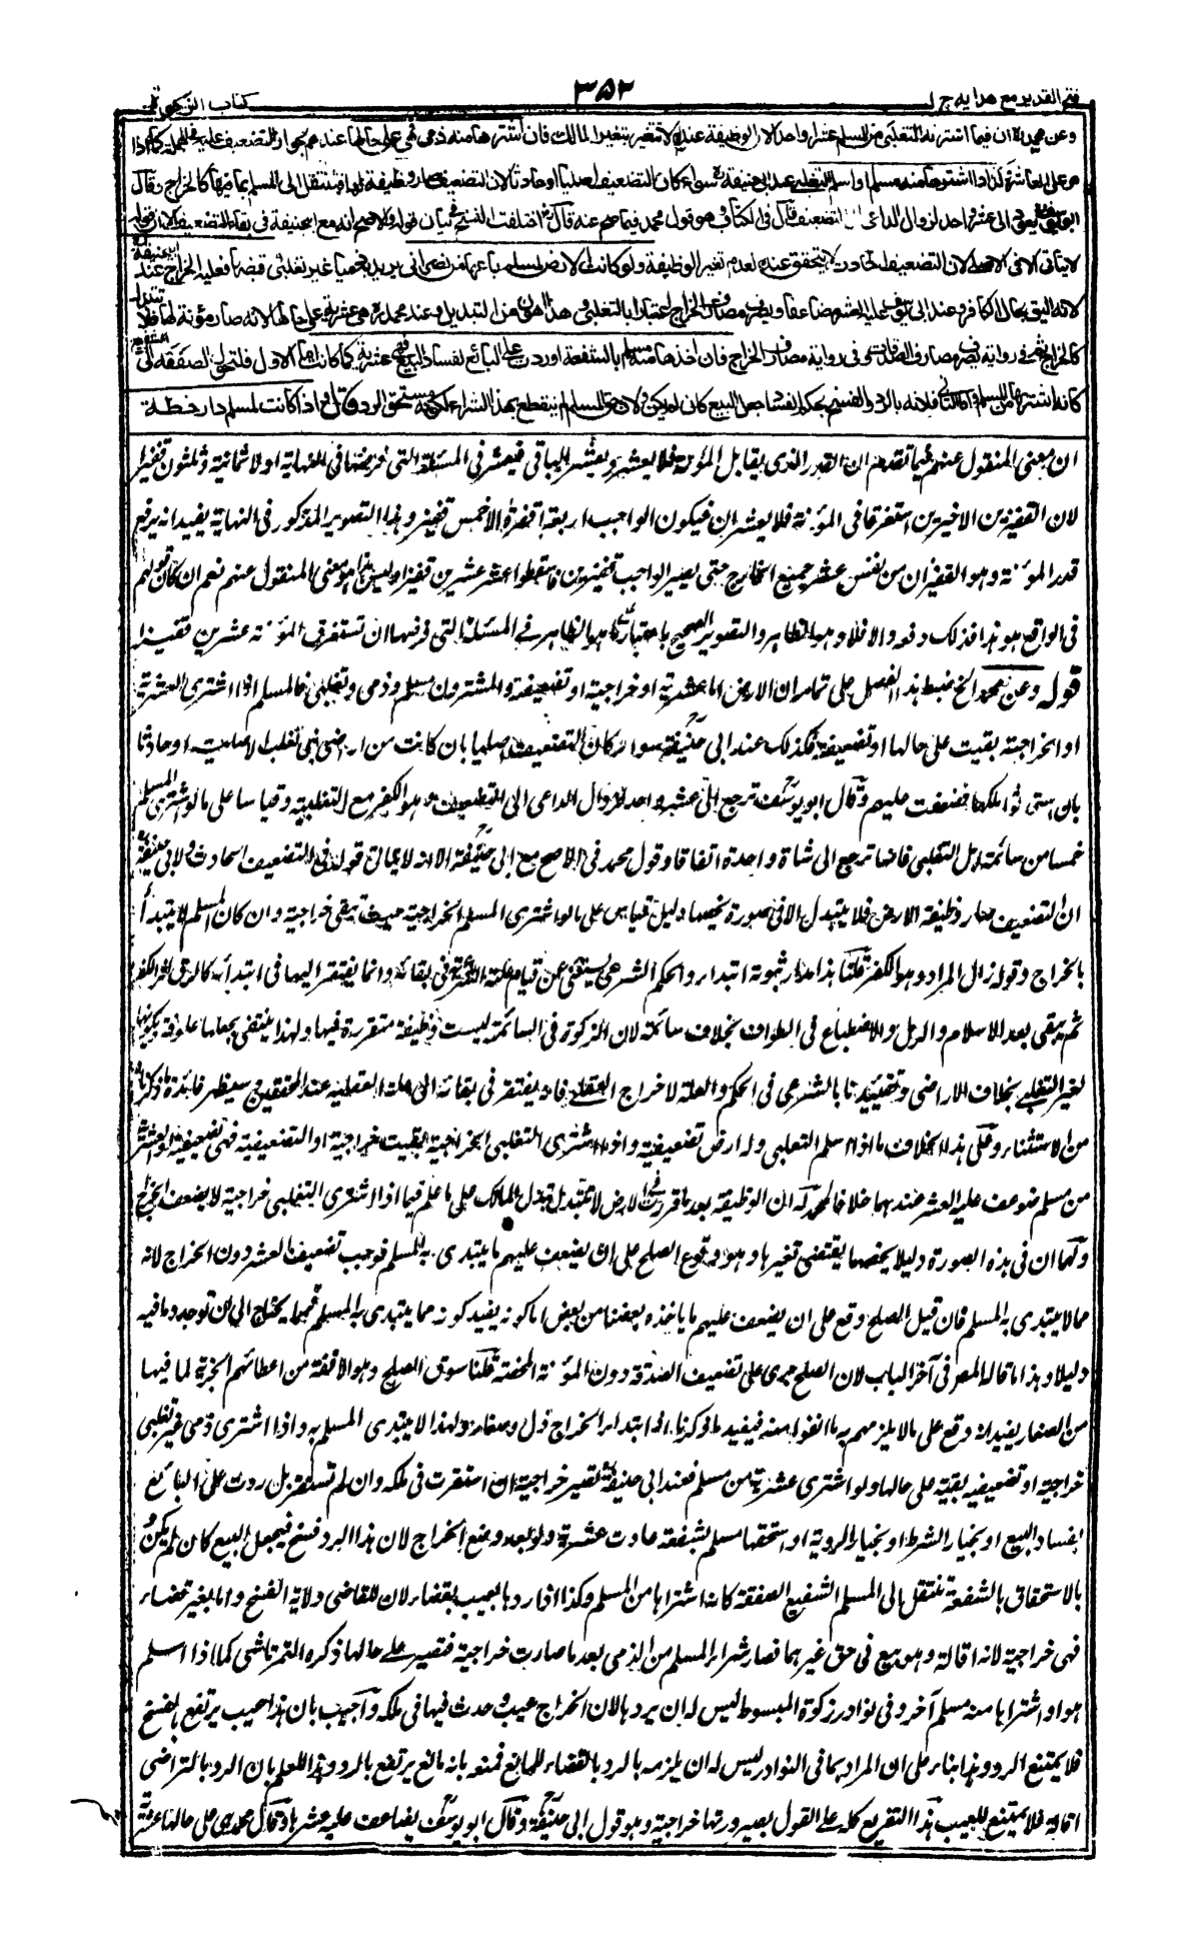 ۳۵۲
فتح القدير مع هدايه ج ۱
كتاب الزكوة
وعن محمد ان فيما اشتراه التغلبى من المسلم عشرا واحدا لان الوظيفة عنده لا تتغير بتغير المالك فان اشتراها منه ذمى فهى على حالها عندهم لجواز التضعيف عليه فى الجملة كما اذا
مر على العاشر وكذا اذا اشتراها منه مسلم او اسلم التغلبى عند ابى حنيفة سواء كان التضعيف اصليا او حادثا لان التضعيف صار وظيفة لها فتنتقل الى المسلم بما فيها كالخراج وقال
ابو يوسف يعود الى عشر واحد لزوال الداعى الى التضعيف قال فى الكتاب وهو قول محمد فيما صح عنه قال اختلفت النسخ فى بيان قوله والاصح انه مع ابى حنيفة فى بقاء التضعيف الا ان قوله
لا يتأتى الا فى الاصلى لان التضعيف الحادث لا يتحقق عنده لعدم تغير الوظيفة ولو كانت الارض لمسلم باعها من نصرانى يريد به ذميا غير تغلبى وقبضها فعليه الخراج عند ابى حنيفة
لانه اليق بحال الكافر وعند ابى يوسف عليه العشر مضاعفا ويصرف مصارف الخراج اعتبارا بالتغلبى وهذا اهون من التبديل وعند محمد هى عشرية على حالها لانه صار مؤنة لها فلا تتبدل
كالخراج ثم فى رواية يصرف مصارف الصدقات وفى رواية مصارف الخراج فان اخذها منه مسلم بالشفعة او ردت على البائع لفساد البيع فهى عشرية كما كانت اما الاول فلتحول الصفقة الى الشفيع
كانه اشتراها من المسلم واما الثانى فلانه بالرد والفسخ بحكم الفساد جعل البيع كان لم يكن ولان حق المسلم لم ينقطع بهذا الشراء لكونه مستحق الرد قال واذا كانت لمسلم دار خطة
ان معنى المنقول عنهم فيما تقدم ان القدر الذى يقابل المؤنة فلا يعشر ويعشر الباقى فيعشر فى المسئلة التى فرضها فى النهاية اولا ثمانية وثلثون قفيزا
لان القفيزين الاخيرين استغرقا فى المؤنة فلا يعشران فيكون الواجب اربعة اقفزة الا خمس قفيز وهذا التصوير المذكور فى النهاية يفيد انه يرفع
قدر المؤنة وهو القفيزان من نفس عشر جميع الخارج حتى يصير الواجب قفيزين فاسقطوا عشر عشرين قفيزا وليس هذا هو معنى المنقول عنهم نعم ان كان قولهم
فى الواقع هو هذا فذلك دفعه والا فلا وهو الظاهر والتصوير الصحيح باعتبار ما هو الظاهر فى المسئلة التى فرضها ان تستغرق المؤنة عشرين قفيزا
قوله وعن محمد الخ ضبط هذا الفصل على تمامه ان الارض اما عشرية او خراجية او تضعيفية والمشترون مسلم وذمى وتغلبى فالمسلم اذا اشترى العشرية
او الخراجية بقيت على حالها او تضعيفية فكذلك عند ابى حنيفة سواء كان التضعيف اصليا بان كانت من اراضى بنى تغلب الاصلية او حادثا
بان استحدثوا ملكها فضعفت عليهم وقال ابو يوسف ترجع الى عشر واحد لزوال الداعى الى التضعيف وهو الكفر مع التغلبية وقياسا على ما لو اشترى المسلم
خمسا من سائمة ابل التغلبى فانها ترجع الى شاة واحدة اتفاقا وقول محمد فى الاصح مع ابى حنيفة الا انه لا يتأتى قوله فى التضعيف الحادث ولابى حنيفة
ان التضعيف صار وظيفة الارض فلا يتبدل الا فى صورة يخصها دليل قياس على ما لو اشترى المسلم الخراجية حيث تبقى خراجية وان كان المسلم لا يبتدأ
بالخراج وقوله زال المراد وهو الكفر قلنا هذا مدار ثبوته ابتداء والحكم الشرعى يستغنى عن قيام علته الشرعية فى بقائه وانما يفتقر اليها فى ابتدائه كالرق اثر الكفر
ثم يبقى بعد الاسلام والرمل والاضطباع فى الطواف بخلاف سائمة لان المذكور فى السائمة ليست وظيفة متقررة فيها ولهذا ينتفى بجعلها علوفة وبكونها
لغير التغلبى بخلاف الاراضى وتقييدنا بالشرعى فى الحكم والعلة لاخراج العقلى فانه يفتقر فى بقائه الى علته العقلية عند المحققين سيظهر فائدة ما ذكرناه
من الاستثناء وعلى هذا الخلاف ما اذا اسلم التغلبى وله ارض تضعيفية واذا اشترى التغلبى الخراجية بقيت خراجية او التضعيفية فهى تضعيفية او العشرية
من مسلم ضوعف عليه العشر عندهما خلافا لمحمد له ان الوظيفة بعد ما قررت فى الارض لا تتبدل بتبدل المالك على ما علم فيما اذا اشترى التغلبى خراجية لا يضعف الخراج
ولهما ان فى هذه الصورة دليلا يخصها يقتضى تغيرها وهو وقوع الصلح على ان يضعف عليهم ما يبتدى به المسلم فوجب تضعيف العشر دون الخراج لانه
مما لا يبتدى به المسلم فان قيل الصلح وقع على ان يضعف عليهم ما ياخذه بعضنا من بعض اما كونه يفيد كونه مما يبتدى به المسلم فمما يحتاج الى ان توجدوا فيه
دليلا وهذا ما قاله المص فى آخر الباب لان الصلح جرى على تضعيف الصدقة دون المؤنة المحضة قلنا سوق الصلح وهو الانفة من اعطائهم الجزية لما فيها
من الصغار يفيد انه وقع على ما لا يلزمهم به ما انفوا منه فيفيد ما ذكرنا اذ ابتداء الخراج ذل وصغار ولهذا لا يبتدى المسلم به واذا اشترى ذمى غير تغلبى
خراجية او تضعيفية بقيت على حالها ولو اشترى عشرية من مسلم فعند ابى حنيفة تصير خراجية ان استقرت فى ملكه وان لم تستقر بل ردت على البائع
بفساد البيع او بخيار الشرط او بخيار الروية او استحقها مسلم بشفعة عادت عشرية ولو بعد وضع الخراج لان هذا الرد فسخ فيجعل البيع كان لم يكن و
بالاستحقاق بالشفعة تنتقل الى المسلم الشفيع الصفقة كانه اشتراها من المسلم وكذا اذا ردها بعيب بقضاء لان للقاضى ولاية الفسخ واما بغير قضاء
فهى خراجية لانه اقالة وهو بيع فى حق غيرهما فصار شراء المسلم من الذمى بعد ما صارت خراجية فتصير على حالها ذكره التمرتاشى كما اذا اسلم
هو او اشتراها منه مسلم آخر وفى نوادر زكوة المبسوط ليس له ان يردها لان الخراج عيب حدث فيها فى ملكه واجيب بان هذا عيب يرتفع بالفسخ
فلا يمتنع الرد وهذا بناء على ان المراد بما فى النوادر ليس له ان يلزمه بالرد بالقضاء للمانع فمنعه بانه مانع يرتفع بالرد وهذا للعلم بان الرد بالتراضى
اقالة فلا يمتنع للعيب هذا التفريع كله على القول بصيرورتها خراجية وهو قول ابى حنيفة وقال ابو يوسف يضاعف عليه عشرها وقال محمد هى على حالها عشرية